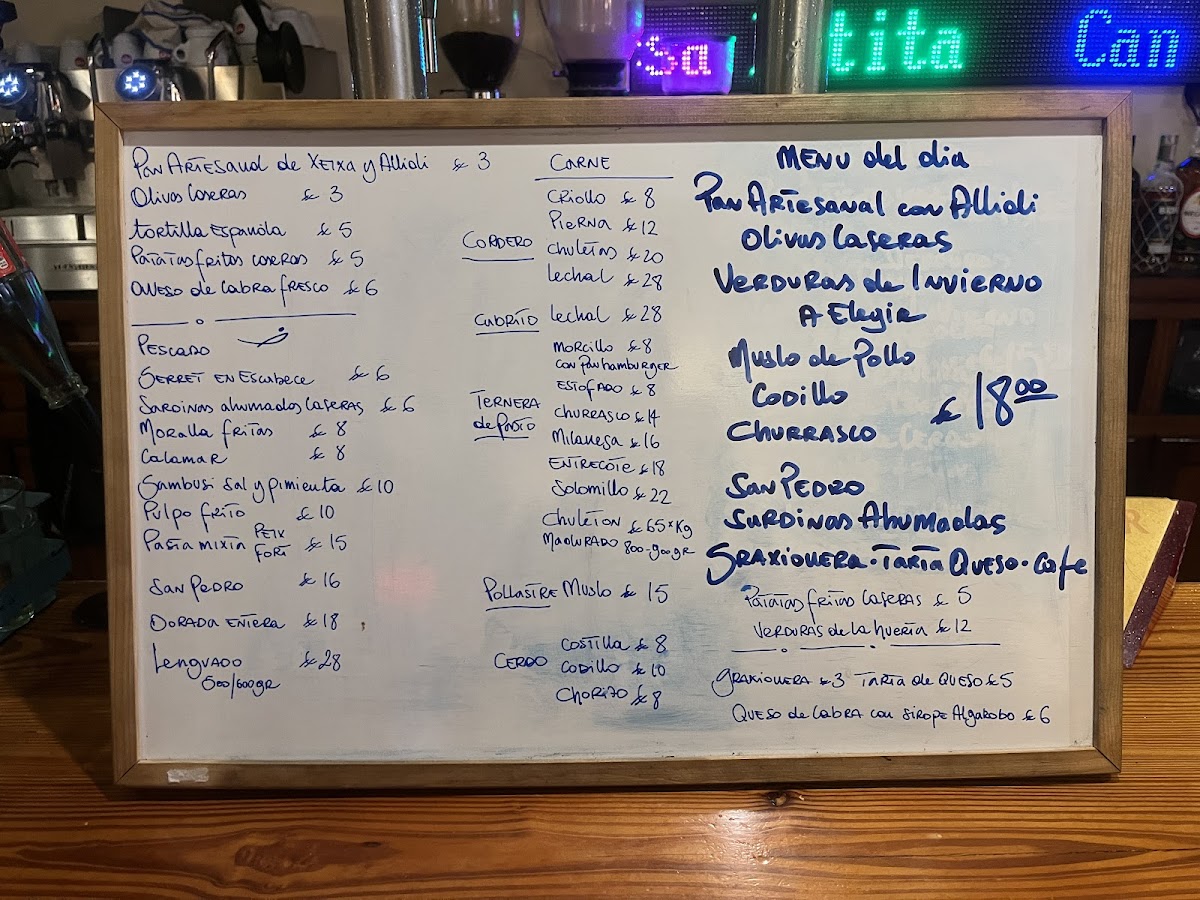 Sa
tita
Can
Pan Artesanal de Xeixa y Allioli € 3
Olivas Caseras € 3
Tortilla Española € 5
Patatas fritas caseras € 5
Queso de Cabra fresco € 6
Pescado
Gerret en Escabece € 6
Sardinas ahumadas Caseras € 6
Moralla fritas € 8
Calamar € 8
Gambusi Sal y pimienta € 10
Pulpo frito € 10
Pasta mixta Peix Fort € 15
San Pedro € 16
Dorada Entera € 18
Lenguado € 28
500/600gr
CARNE
CORDERO
Criollo € 8
Pierna € 12
Chuletas € 20
Lechal € 28
CABRITO Lechal € 28
TERNERA de Pasto
Morcillo € 8
con Pan hamburger
Estofado € 8
Churrasco € 14
Milanesa € 16
Entrecote € 18
Solomillo € 22
Chuleton € 65 x Kg
Madurado 800-900gr
POLLASTRE Muslo € 15
CERDO
Costilla € 8
Codillo € 10
Chorizo € 8
MENU del dia
Pan Artesanal con Allioli
Olivas Caseras
Verduras de Invierno
A Elegir
Muslo de Pollo
Codillo
Churrasco
€ 18.00
San Pedro
Surdinas Ahumadas
Graxionera · Tarta Queso · Cafe
Patatas fritas Caseras € 5
Verduras de la huerta € 12
Graxionera € 3 Tarta de Queso € 5
Queso de Cabra con Sirope Algarobo € 6